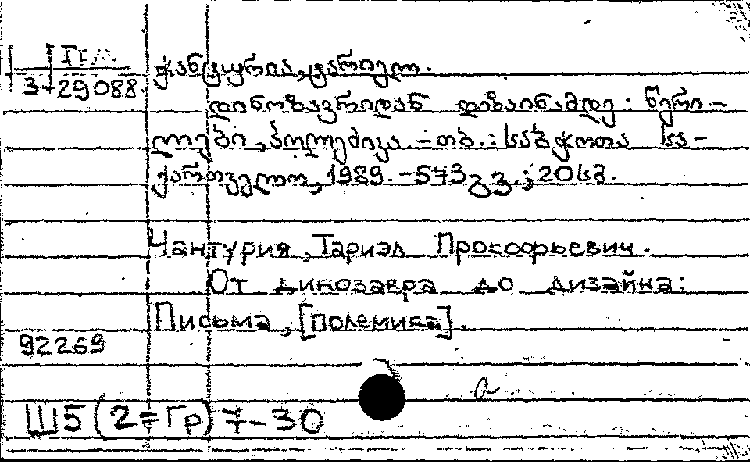 Гр.
3-29088.
ჭანტურია, ტარიელ.
დინოზავრიდან დიზაინამდე: წერი-
ლები, პოლემიკა. - თბ.: საბჭოთა სა-
ქართველო, 1989. - 573 გვ.; 20 სმ.
Чантурия, Тариэл Прокофьевич.
От динозавра до дизайна:
Письма, [полемика].
92269
Ш5(2=Гр)7-30